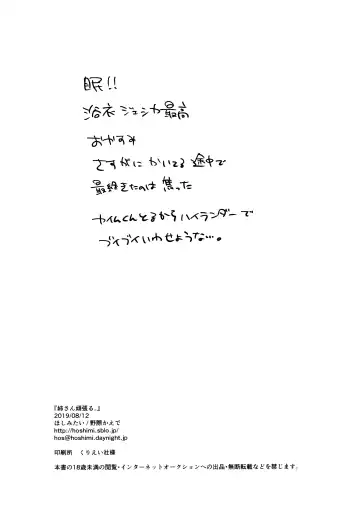 眠!!
浴衣ジェシカ最高
おやすみ
さすがに かいてる 途中で
最終きたのは 焦った
カイムくんとるから ハイランダーで
ブイブイいわせような…。
『姉さん頑張る。』
2019/08/12
ほしみたい / 野際かえで
http://hoshimi.sblo.jp/
hos@hoshimi.daynight.jp
印刷所 くりえい社様
本書の18歳未満の閲覧・インターネットオークションへの出品・無断転載などを禁じます。